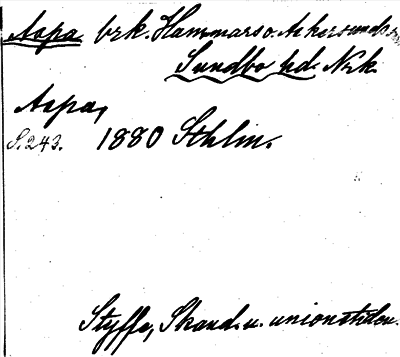 Aspa brk. Hammars o. Askersunds
Sundbo hd. Nrk.
Aspa,
S. 243. 1880 Sthlm.
Styffe, Skand. u. unionstiden.